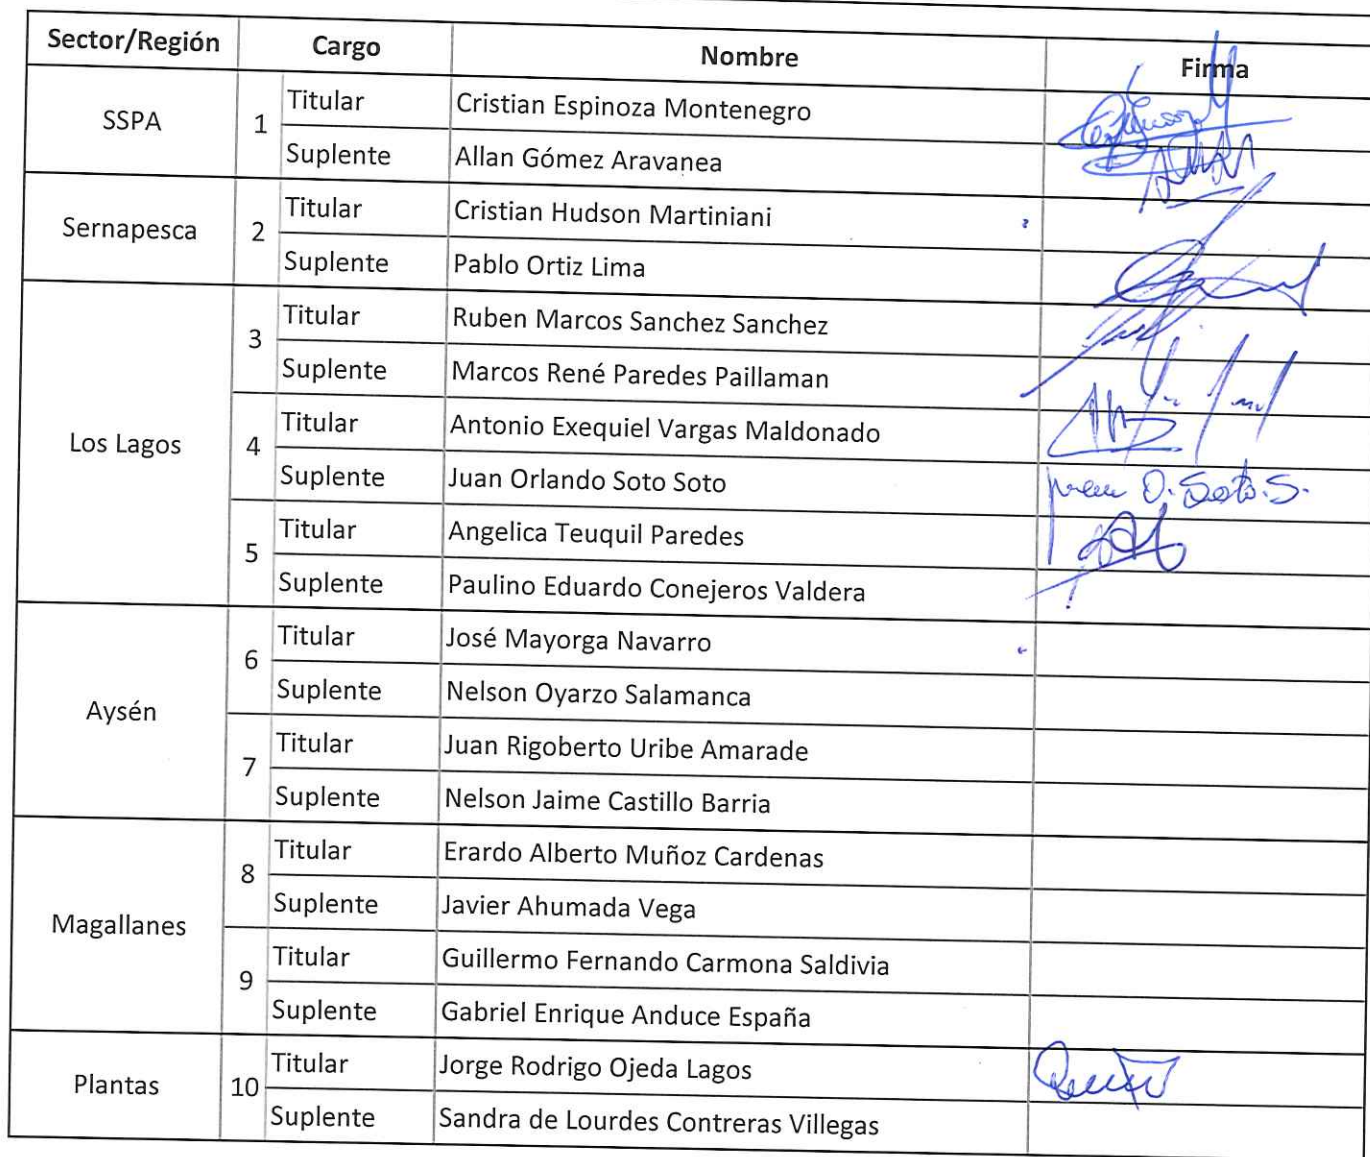 Sector/Región Cargo Nombre Firma
SSPA 1 Titular Cristian Espinoza Montenegro
Suplente Allan Gómez Aravanea
Sernapesca 2 Titular Cristian Hudson Martiniani
Suplente Pablo Ortiz Lima
Los Lagos 3 Titular Ruben Marcos Sanchez Sanchez
Suplente Marcos René Paredes Paillaman
4 Titular Antonio Exequiel Vargas Maldonado
Suplente Juan Orlando Soto Soto Juan O. Soto. S.
5 Titular Angelica Teuquil Paredes
Suplente Paulino Eduardo Conejeros Valdera
Aysén 6 Titular José Mayorga Navarro
Suplente Nelson Oyarzo Salamanca
7 Titular Juan Rigoberto Uribe Amarade
Suplente Nelson Jaime Castillo Barria
Magallanes 8 Titular Erardo Alberto Muñoz Cardenas
Suplente Javier Ahumada Vega
9 Titular Guillermo Fernando Carmona Saldivia
Suplente Gabriel Enrique Anduce España
Plantas 10 Titular Jorge Rodrigo Ojeda Lagos
Suplente Sandra de Lourdes Contreras Villegas